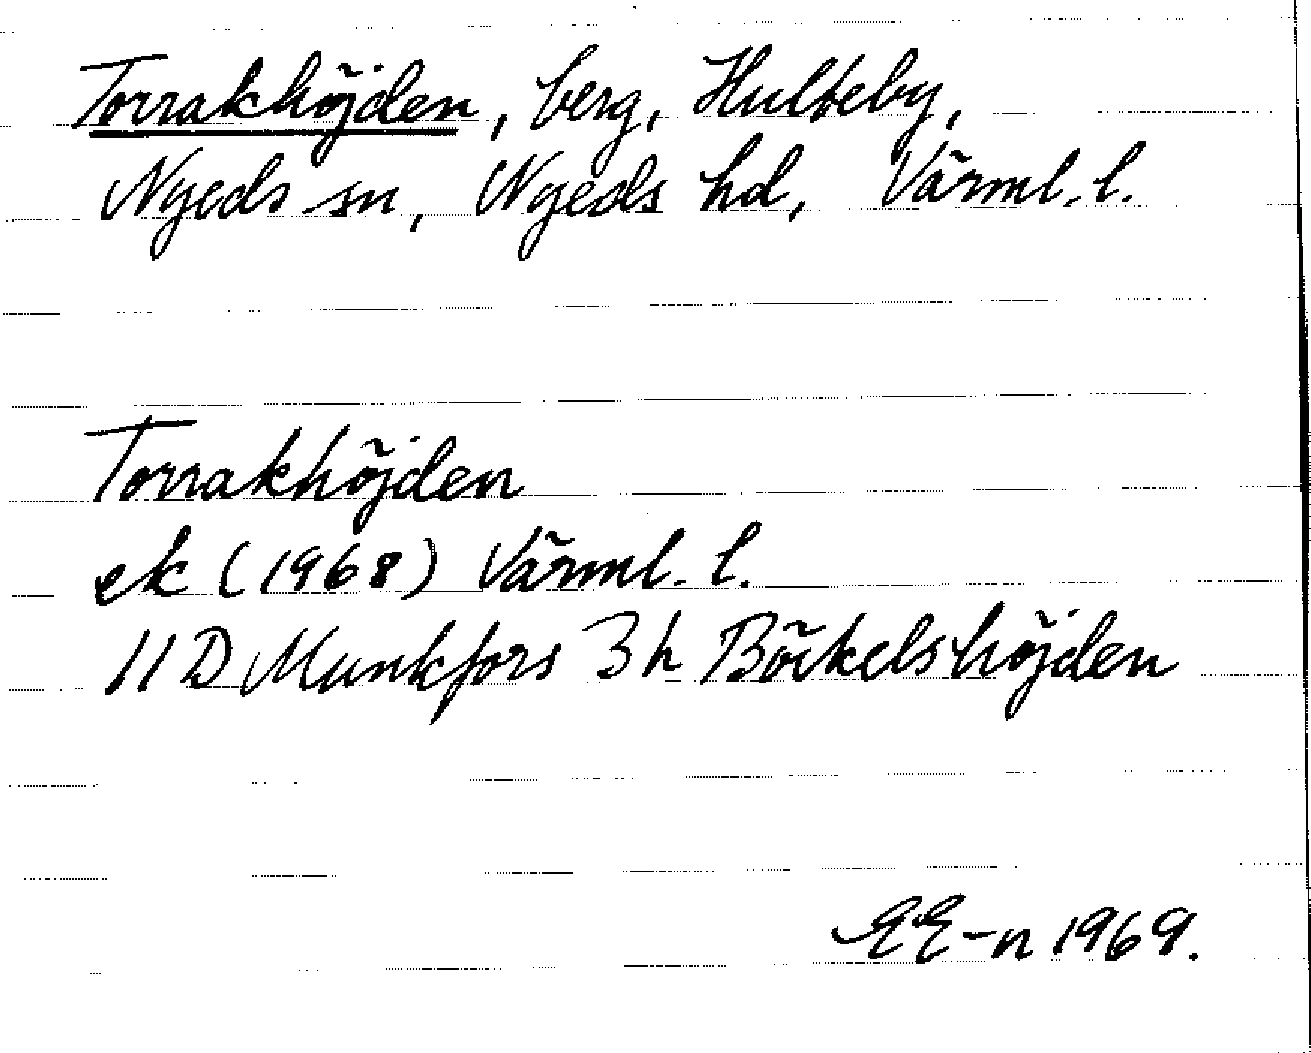 Torrakhöjden, berg, Hulteby,
Nyeds sn, Nyeds hd, Värml. l.
Torrakhöjden
ek (1968) Värml. l.
11D Munkfors 3h Böckelshöjden
EE-n 1969.